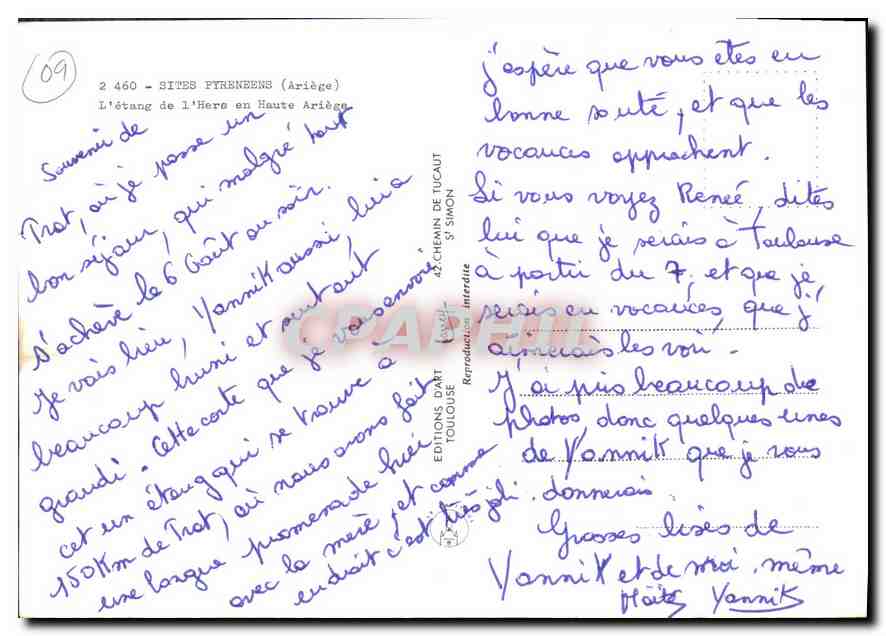 09
2 460 - SITES PYRENEENS (Ariège)
L'étang de l'Hers en Haute Ariège
Souvenir de
Trat, où je passe un
bon séjour, qui malgré tout
s'achève le 6 Août au soir.
Je vais bien, Yannik aussi, lui a
beaucoup bruni et surtout
grandi. Cette carte que je vous envoie
est un étang qui se trouve à
150 Km de Trat, où nous avons fait
une longue promenade hier
avec la mère, et comme
endroit c'est très joli.
EDITIONS D'ART Larrey
TOULOUSE
42. CHEMIN DE TUCAUT
St SIMON
Reproduction interdite
CPAPHIL
j'espère que vous êtes en
bonne santé, et que les
vacances approchent.
Si vous voyez Reneé, dites
lui que je serais à Toulouse
à partir du 7, et que je
serais en vacances, que j'
aimerais les voir.
J'ai pris beaucoup de
photos, donc quelques unes
de Yannik que je vous
donnerais.
Grosses bises de
Yannik et de moi. même
Yannik